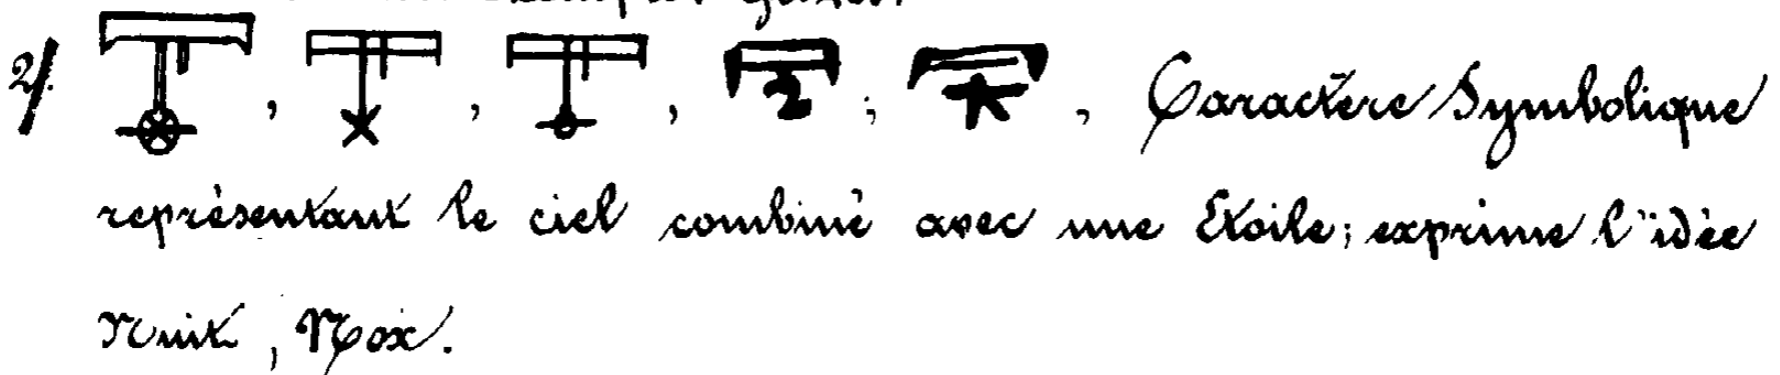 2/. 𓇰, 𓇰, 𓇰, , Caractère Symbolique
représentant le ciel combiné avec une Etoile; exprime l'idée
Nuit, Nox.